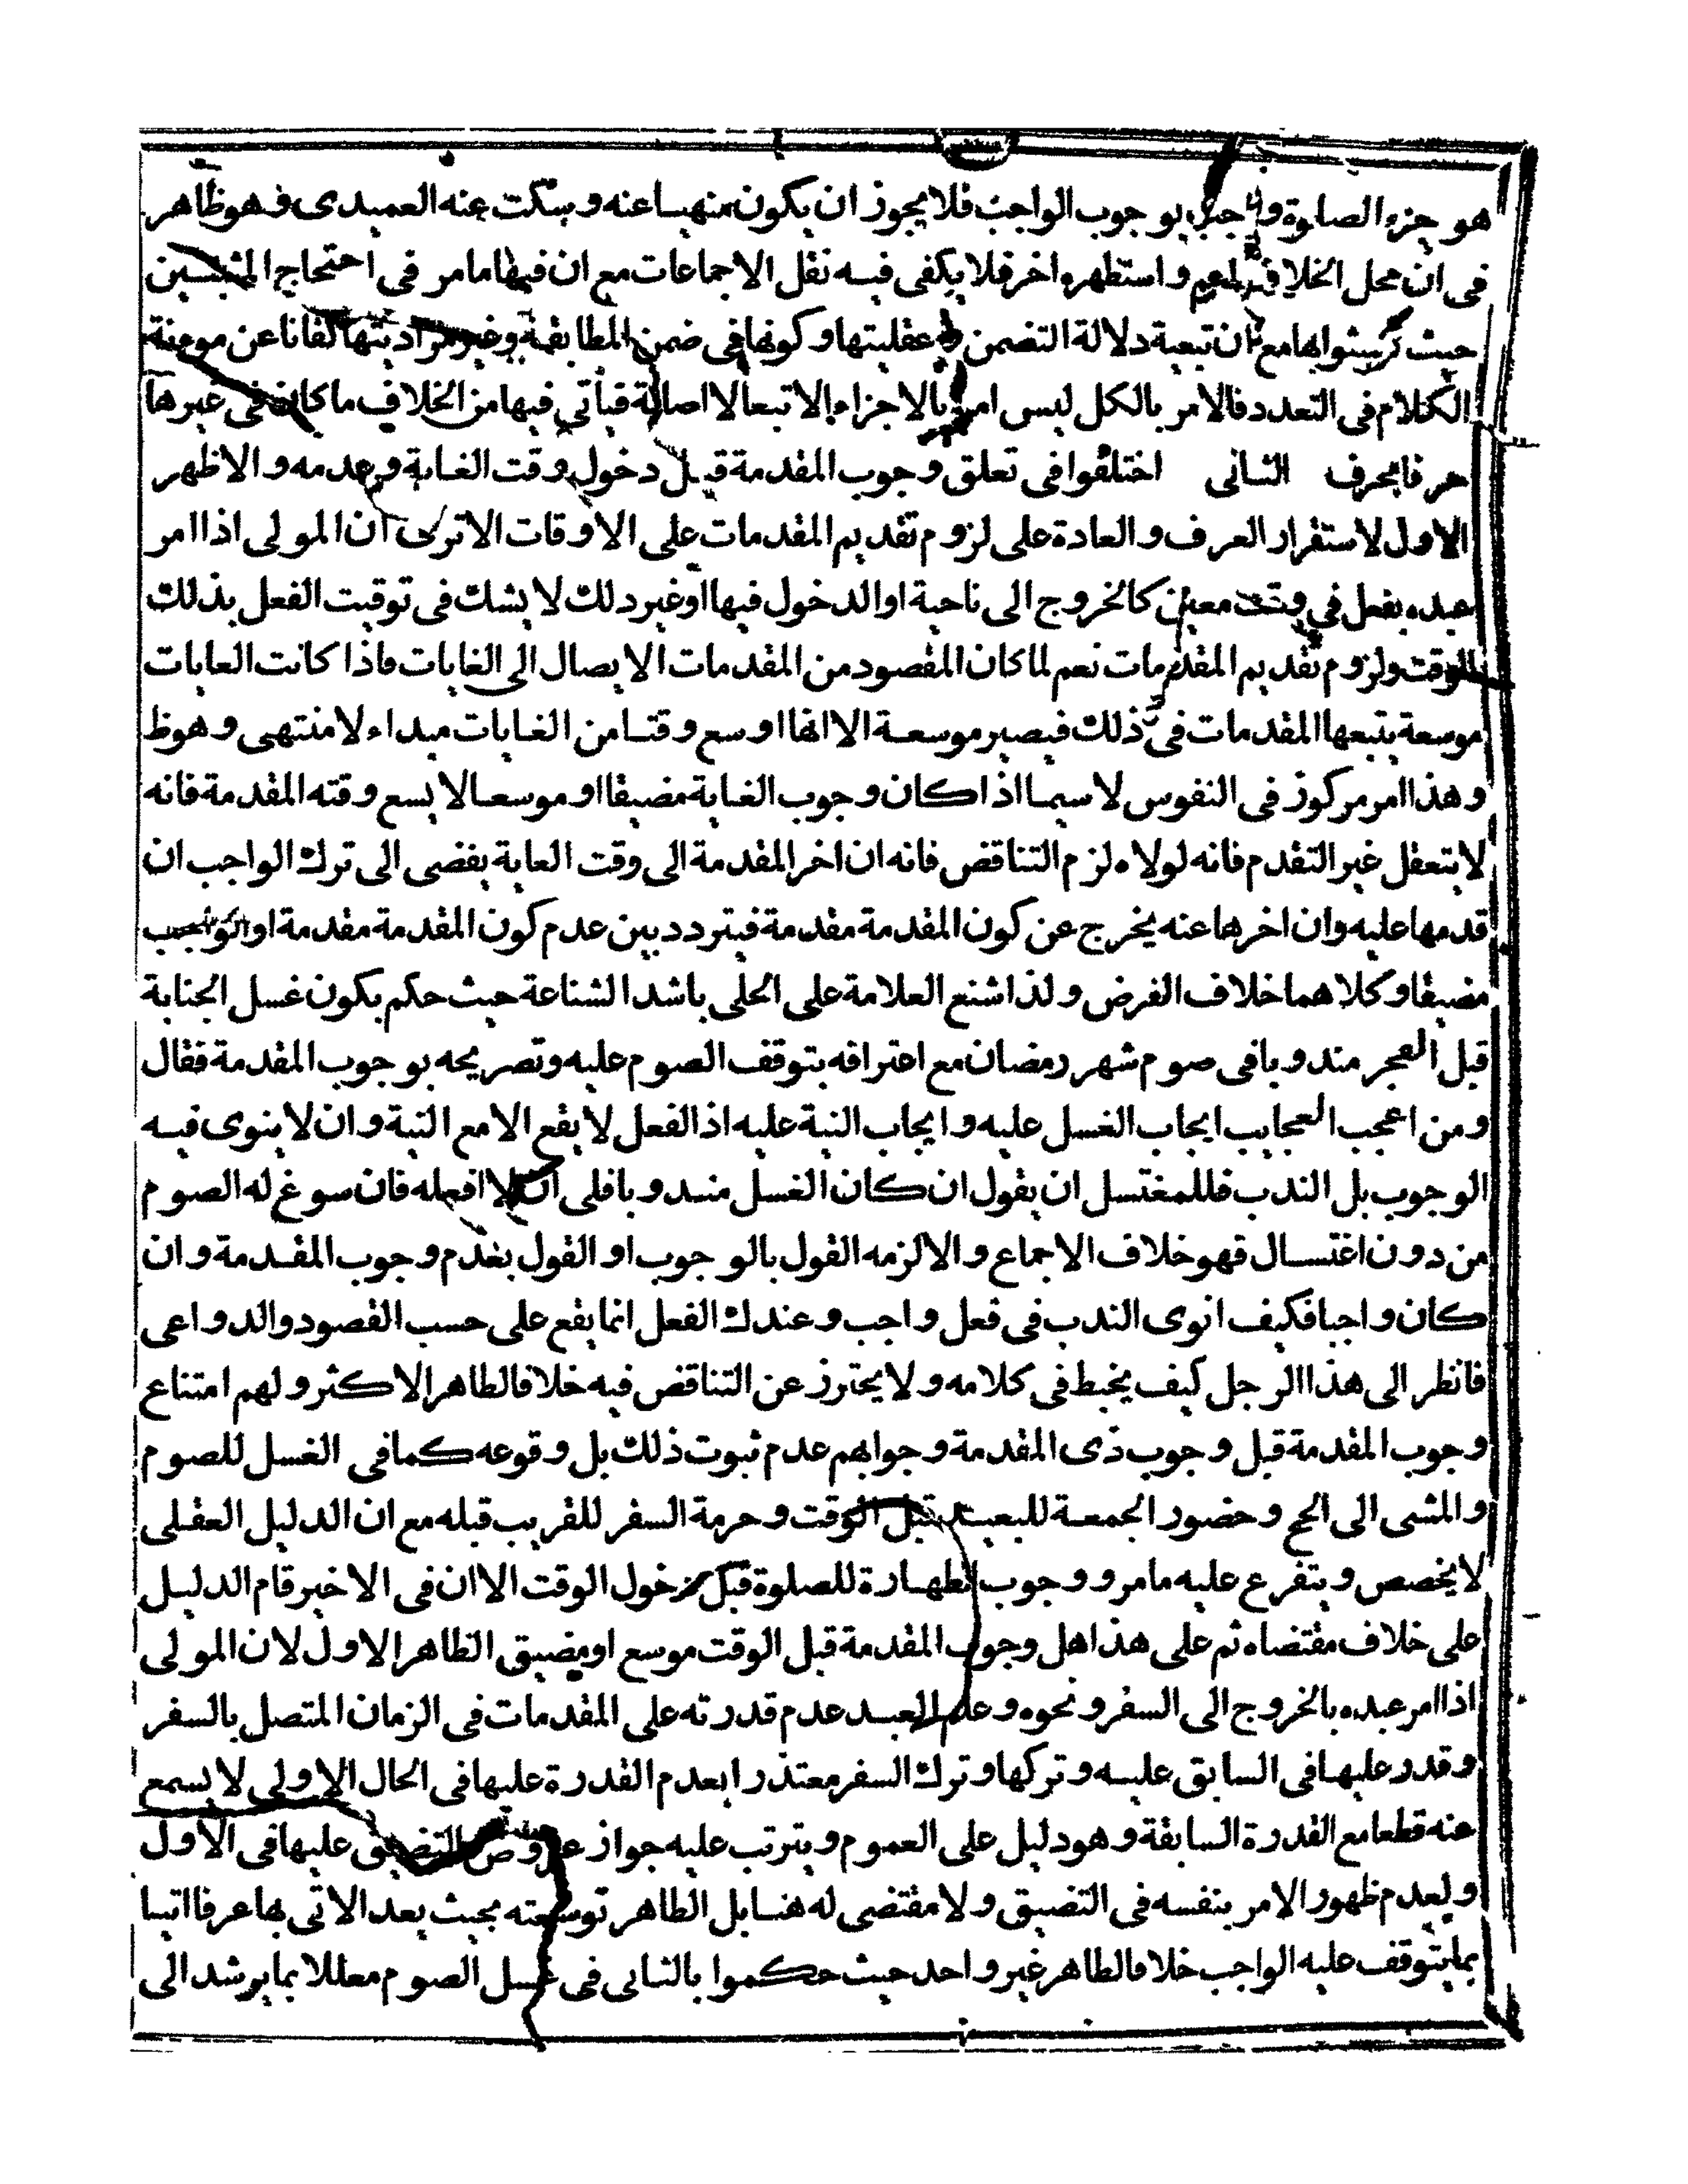 هو جزء الصلوة واجب بوجوب الواجب فلا يجوز ان يكون منهيا عنه وسكت عنه العميدى فهو ظاهر
فى ان محل الخلاف اعم واستظهره اخر فلا يكفى فيه نقل الاجماعات مع ان فيها ما مر فى احتجاج المثبتين
حيث تشبثوا بها مع ان تبعية دلالة التضمن عقليتها وكونها فى ضمن المطابقة وغير مراديتها كفانا عن مومنة
الكلام فى التعدد فالامر بالكل ليس امر بالاجزاء الا تبعا لا اصالة فيأتي فيها من الخلاف ما كان فى غيرها
حرفا بحرف الثانى اختلفوا فى تعلق وجوب المقدمة قبل دخول وقت الغاية وعدمه والاظهر
الاول لاستقرار العرف والعادة على لزوم تقديم المقدمات على الاوقات الا ترى ان المولى اذا امر
عبده بفعل في وقت معين كالخروج الى ناحية او الدخول فيها او غير ذلك لا يشك فى توقيت الفعل بذلك
الوقت ولزوم تقديم المقدمات نعم لما كان المقصود من المقدمات الايصال الى الغايات فاذا كانت الغايات
موسعة يتبعها المقدمات فى ذلك فيصير موسعة الا انها اوسع وقتا من الغايات مبداء لا منتهى وهو ظ
وهذا امر مركوز فى النفوس لا سيما اذا كان وجوب الغاية مضيقا او موسعا لا يسع وقته المقدمة فانه
لا يتعقل غير التقدم فانه لولاه لزم التناقض فانه ان اخر المقدمة الى وقت الغاية يفضى الى ترك الواجب ان
قدمها عليه وان اخرها عنه يخرج عن كون المقدمة مقدمة فيتردد بين عدم كون المقدمة مقدمة او الواجب
مضيقا وكلاهما خلاف الفرض ولذا اشنع العلامة على الحلى باشد الشناعة حيث حكم بكون غسل الجنابة
قبل الفجر مندوبا فى صوم شهر رمضان مع اعترافه بتوقف الصوم عليه وتصريحه بوجوب المقدمة فقال
ومن اعجب العجايب ايجاب الغسل عليه وايجاب النية عليه اذ الفعل لا يقع الا مع النية وان لا ينوى فيه
الوجوب بل الندب فللمغتسل ان يقول ان كان الغسل مندوبا فلى ان لا افعله فان سوغ له الصوم
من دون اغتسال فهو خلاف الاجماع والا لزمه القول بالوجوب او القول بعدم وجوب المقدمة وان
كان واجبا فكيف انوى الندب فى فعل واجب وعندك الفعل انما يقع على حسب القصود والدواعى
فانظر الى هذا الرجل كيف يخبط فى كلامه ولا يحترز عن التناقض فيه خلافا لظاهر الاكثر ولهم امتناع
وجوب المقدمة قبل وجوب ذى المقدمة وجوابهم عدم ثبوت ذلك بل وقوعه كما فى الغسل للصوم
والمشى الى الحج وحضور الجمعة للبعيد قبل الوقت وحرمة السفر للقريب قبله مع ان الدليل العقلى
لا يخصص ويتفرع عليه ما مر ووجوب الطهارة للصلوة قبل دخول الوقت الا ان فى الاخير قام الدليل
على خلاف مقتضاه ثم على هذا هل وجوب المقدمة قبل الوقت موسع او مضيق الظاهر الاول لان المولى
اذا امر عبده بالخروج الى السفر ونحوه وعلم العبد عدم قدرته على المقدمات فى الزمان المتصل بالسفر
وقدر عليها فى السابق عليه وتركها وترك السفر معتذرا بعدم القدرة عليها فى الحال الاولى لا يسمع
عنه قطعا مع القدرة السابقة وهو دليل على العموم ويترتب عليه جواز عروض التضيق عليها فى الاول
ولعدم ظهور الامر بنفسه فى التضيق ولا مقتضى له هنا بل الظاهر توسعته بحيث يعد الاتى بها عرفا اتيا
بما يتوقف عليه الواجب خلافا لظاهر غير واحد حيث حكموا بالثانى فى غسل الصوم معللا بما يرشد الى